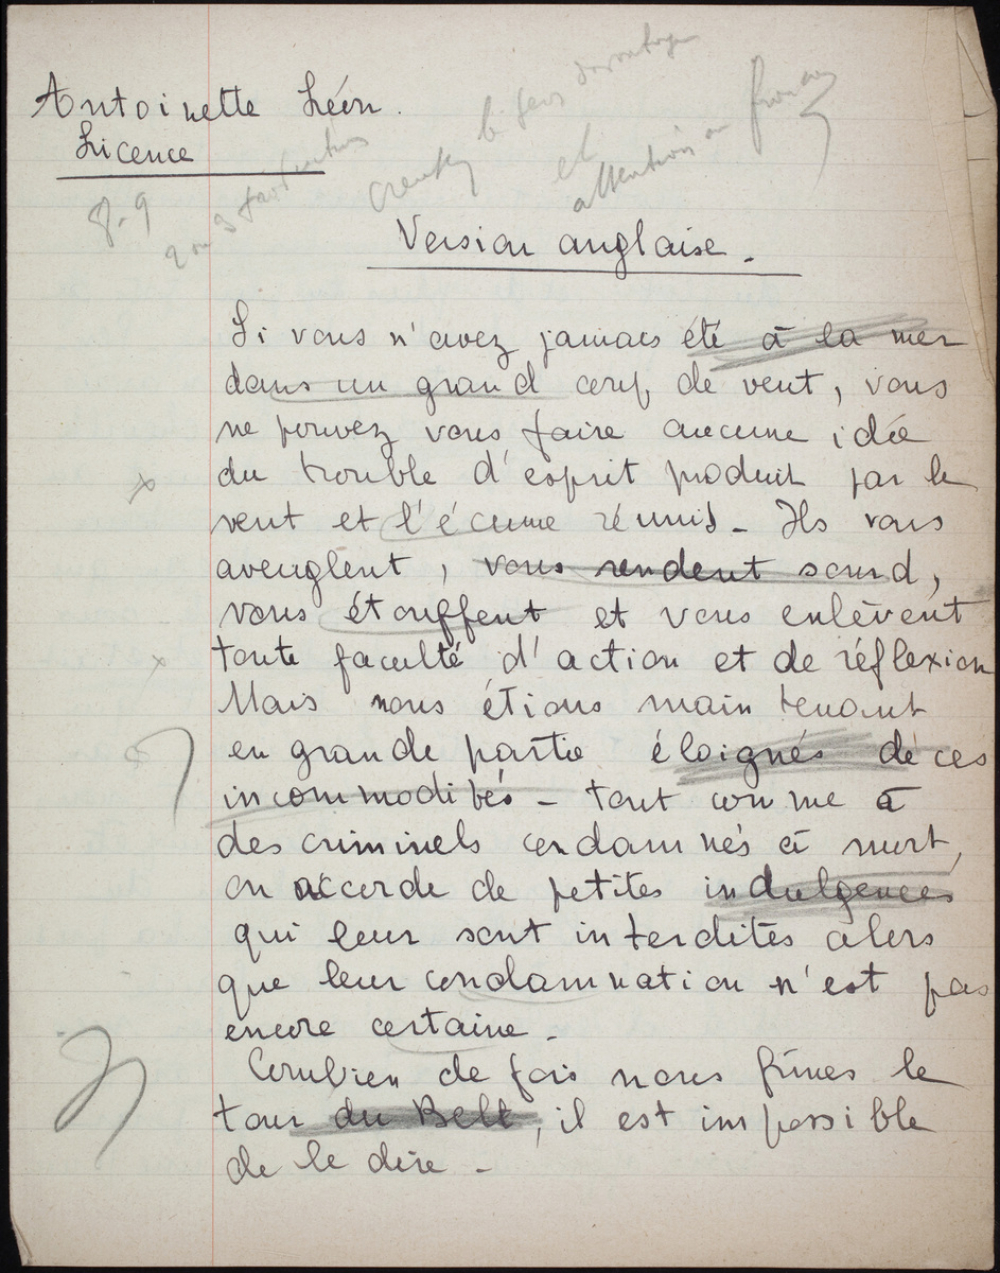 Antoinette Léon.
Licence
8-9
creusez le sens davantage
et
attention au français
Version anglaise.
Si vous n'avez jamais été à la mer
dans un grand coup de vent, vous
ne pouvez vous faire aucune idée
du trouble d'esprit produit par le
vent et l'écume réunis - Ils vous
aveuglent, vous rendent sourd,
vous étouffent et vous enlèvent
toute faculté d'action et de réflexion
Mais nous étions maintenant
en grande partie éloignés de ces
incommodités - tout comme à
des criminels condamnés à mort,
on accorde de petites indulgences
qui leur sont interdites alors
que leur condamnation n'est pas
encore certaine.
Combien de fois nous fîmes le
tour du Belt, il est impossible
de le dire -